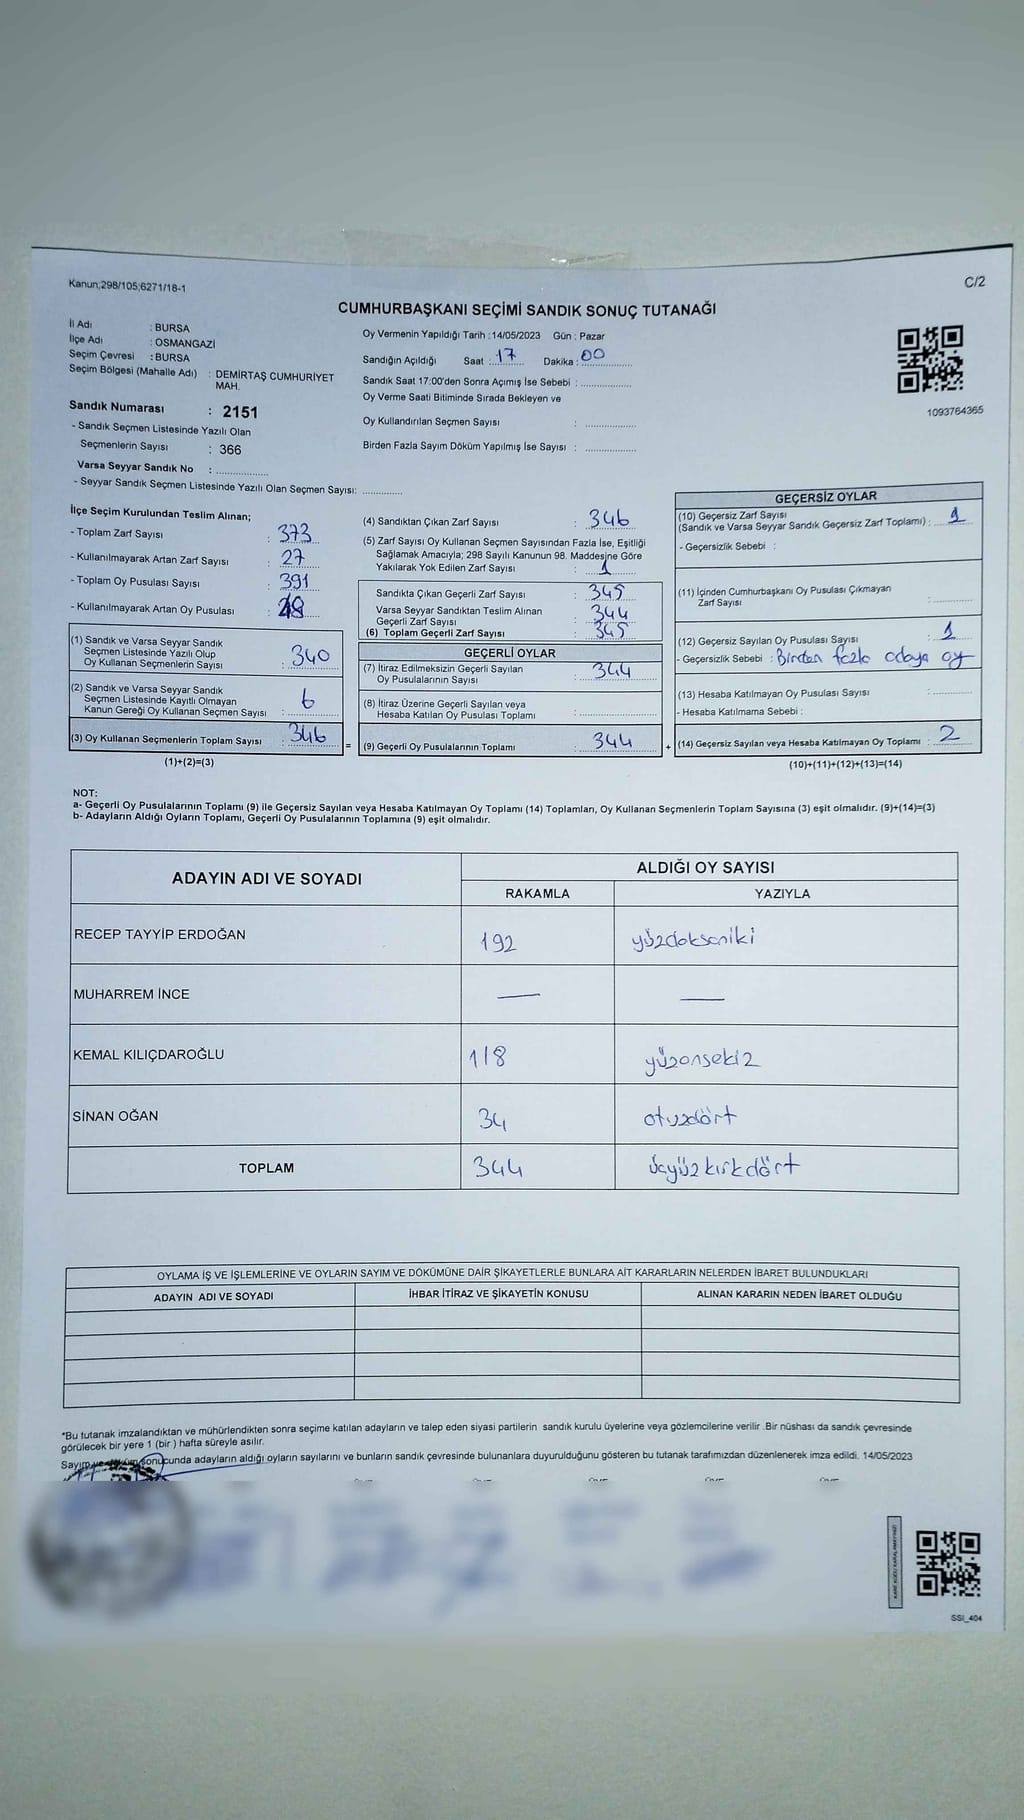 Kanun;298/105;6271/18-1
C/2
CUMHURBAŞKANI SEÇİMİ SANDIK SONUÇ TUTANAĞI
İl Adı : BURSA
İlçe Adı : OSMANGAZİ
Seçim Çevresi : BURSA
Seçim Bölgesi (Mahalle Adı) : DEMİRTAŞ CUMHURİYET
MAH.
Sandık Numarası : 2151
- Sandık Seçmen Listesinde Yazılı Olan
Seçmenlerin Sayısı : 366
Varsa Seyyar Sandık No : ....................
- Seyyar Sandık Seçmen Listesinde Yazılı Olan Seçmen Sayısı: ..............
Oy Vermenin Yapıldığı Tarih :14/05/2023 Gün : Pazar
Sandığın Açıldığı Saat : 17 Dakika : 00
Sandık Saat 17:00'den Sonra Açımış İse Sebebi : ..................
Oy Verme Saati Bitiminde Sırada Bekleyen ve
Oy Kullandırılan Seçmen Sayısı : ..................
Birden Fazla Sayım Döküm Yapılmış İse Sayısı : ..................
1093764365
İlçe Seçim Kurulundan Teslim Alınan;
- Toplam Zarf Sayısı : 373
- Kullanılmayarak Artan Zarf Sayısı : 27
- Toplam Oy Pusulası Sayısı : 391
- Kullanılmayarak Artan Oy Pusulası :
(1) Sandık ve Varsa Seyyar Sandık
Seçmen Listesinde Yazılı Olup
Oy Kullanan Seçmenlerin Sayısı : 340
(2) Sandık ve Varsa Seyyar Sandık
Seçmen Listesinde Kayıtlı Olmayan
Kanun Gereği Oy Kullanan Seçmen Sayısı : 6
(3) Oy Kullanan Seçmenlerin Toplam Sayısı : 346
(1)+(2)=(3)
(4) Sandıktan Çıkan Zarf Sayısı : 346
(5) Zarf Sayısı Oy Kullanan Seçmen Sayısından Fazla İse, Eşitliği
Sağlamak Amacıyla; 298 Sayılı Kanunun 98. Maddesine Göre
Yakılarak Yok Edilen Zarf Sayısı : 1
Sandıkta Çıkan Geçerli Zarf Sayısı : 345
Varsa Seyyar Sandıktan Teslim Alınan
Geçerli Zarf Sayısı : 344
(6) Toplam Geçerli Zarf Sayısı : 345
GEÇERLİ OYLAR
(7) İtiraz Edilmeksizin Geçerli Sayılan
Oy Pusulalarının Sayısı : 344
(8) İtiraz Üzerine Geçerli Sayılan veya
Hesaba Katılan Oy Pusulası Toplamı :
= (9) Geçerli Oy Pusulalarının Toplamı : 344 +
GEÇERSİZ OYLAR
(10) Geçersiz Zarf Sayısı
(Sandık ve Varsa Seyyar Sandık Geçersiz Zarf Toplamı) : 1
- Geçersizlik Sebebi :
(11) İçinden Cumhurbaşkanı Oy Pusulası Çıkmayan
Zarf Sayısı :
(12) Geçersiz Sayılan Oy Pusulası Sayısı : 1
- Geçersizlik Sebebi : Birden fazla adaya oy
(13) Hesaba Katılmayan Oy Pusulası Sayısı :
- Hesaba Katılmama Sebebi :
(14) Geçersiz Sayılan veya Hesaba Katılmayan Oy Toplamı : 2
(10)+(11)+(12)+(13)=(14)
NOT:
a- Geçerli Oy Pusulalarının Toplamı (9) ile Geçersiz Sayılan veya Hesaba Katılmayan Oy Toplamı (14) Toplamları, Oy Kullanan Seçmenlerin Toplam Sayısına (3) eşit olmalıdır. (9)+(14)=(3)
b- Adayların Aldığı Oyların Toplamı, Geçerli Oy Pusulalarının Toplamına (9) eşit olmalıdır.
ADAYIN ADI VE SOYADI ALDIĞI OY SAYISI
RAKAMLA YAZIYLA
RECEP TAYYİP ERDOĞAN 192 yüzdoksaniki
MUHARREM İNCE — —
KEMAL KILIÇDAROĞLU 118 yüzonsekiz
SİNAN OĞAN 34 otuzdört
TOPLAM 344 üçyüzkırkdört
OYLAMA İŞ VE İŞLEMLERİNE VE OYLARIN SAYIM VE DÖKÜMÜNE DAİR ŞİKAYETLERLE BUNLARA AİT KARARLARIN NELERDEN İBARET BULUNDUKLARI
ADAYIN ADI VE SOYADI İHBAR İTİRAZ VE ŞİKAYETİN KONUSU ALINAN KARARIN NEDEN İBARET OLDUĞU
*Bu tutanak imzalandıktan ve mühürlendikten sonra seçime katılan adayların ve talep eden siyasi partilerin sandık kurulu üyelerine veya gözlemcilerine verilir .Bir nüshası da sandık çevresinde
görülecek bir yere 1 (bir ) hafta süreyle asılır.
Sayım ve sonucunda adayların aldığı oyların sayılarını ve bunların sandık çevresinde bulunanlara duyurulduğunu gösteren bu tutanak tarafımızdan düzenlenerek imza edildi. 14/05/2023
SSI_404